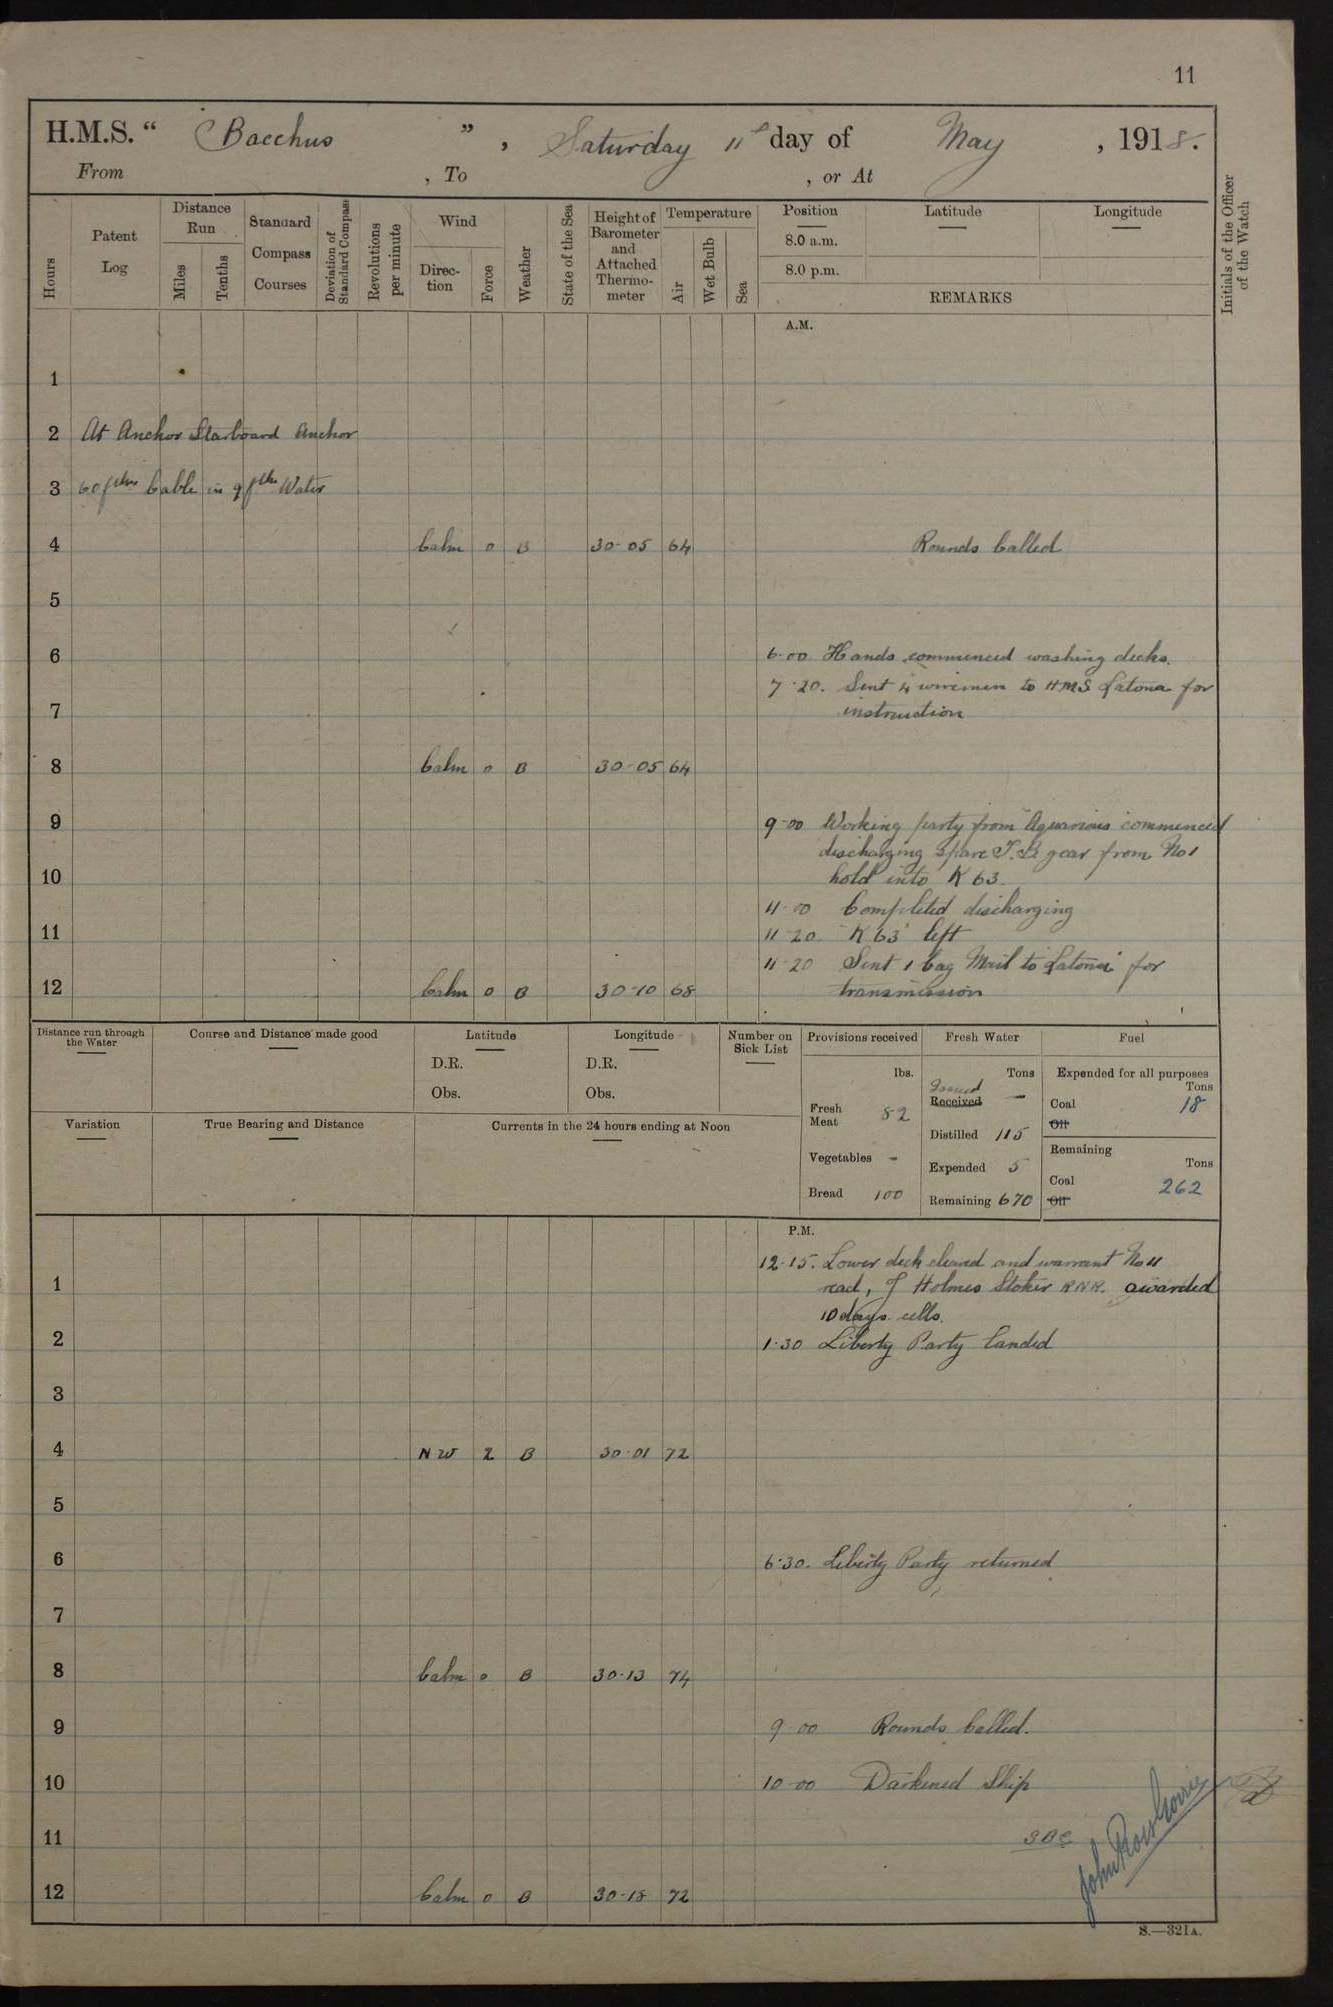 11
H.M.S. “ Bacchus ”, Saturday 11th day of May, 1918.
From , To , or At
Hours
Patent Log
Distance Run
Miles
Tenths
Standard Compass Courses
Deviation of Standard Compass
Revolutions per minute
Wind
Direction
Force
Weather
State of the Sea
Height of Barometer and Attached Thermometer
Temperature
Air
Wet Bulb
Sea
Position
8.0 a.m.
8.0 p.m.
Latitude
Longitude
REMARKS
Initials of the Officer of the Watch
A.M.
1
2 At Anchor Starboard Anchor
3 60 fthms Cable in 9 fths Water
4 Calm 0 B 30-05 64 Rounds Called
5
6 6-00 Hands commenced washing decks.
7-20. Sent 4 wiremen to HMS Latona for
7 instruction
8 Calm 0 B 30-05 64
9 9-00 Working party from "Aquarius" commenced
discharging spare T.B. gear from No 1
10 hold into K 63.
11-00 Completed discharging
11 11-20 "K 63" left
11-20 Sent 1 bag Mail to "Latona" for
12 Calm 0 B 30-10 68 transmission
Distance run through the Water
Course and Distance made good
Latitude
D.R.
Obs.
Longitude
D.R.
Obs.
Number on Sick List
Provisions received
lbs.
Fresh Meat 82
Vegetables -
Bread 100
Fresh Water
Tons
Issued
Received -
Distilled 115
Expended 5
Remaining 670
Fuel
Expended for all purposes
Tons
Coal 18
Oil
Remaining
Tons
Coal 262
Oil
Variation
True Bearing and Distance
Currents in the 24 hours ending at Noon
P.M.
12-15. Lower deck cleared and warrant No 11
1 read, J Holmes Stoker RNR. awarded
10 days cells.
2 1-30 Liberty Party landed
3
4 NW 2 B 30-01 72
5
6 6-30. Liberty Party returned
7
8 Calm 0 B 30-13 74
9 9 00 Rounds Called.
10 10-00 Darkened Ship
11
12 Calm 0 B 30-18 72
S.—321A.